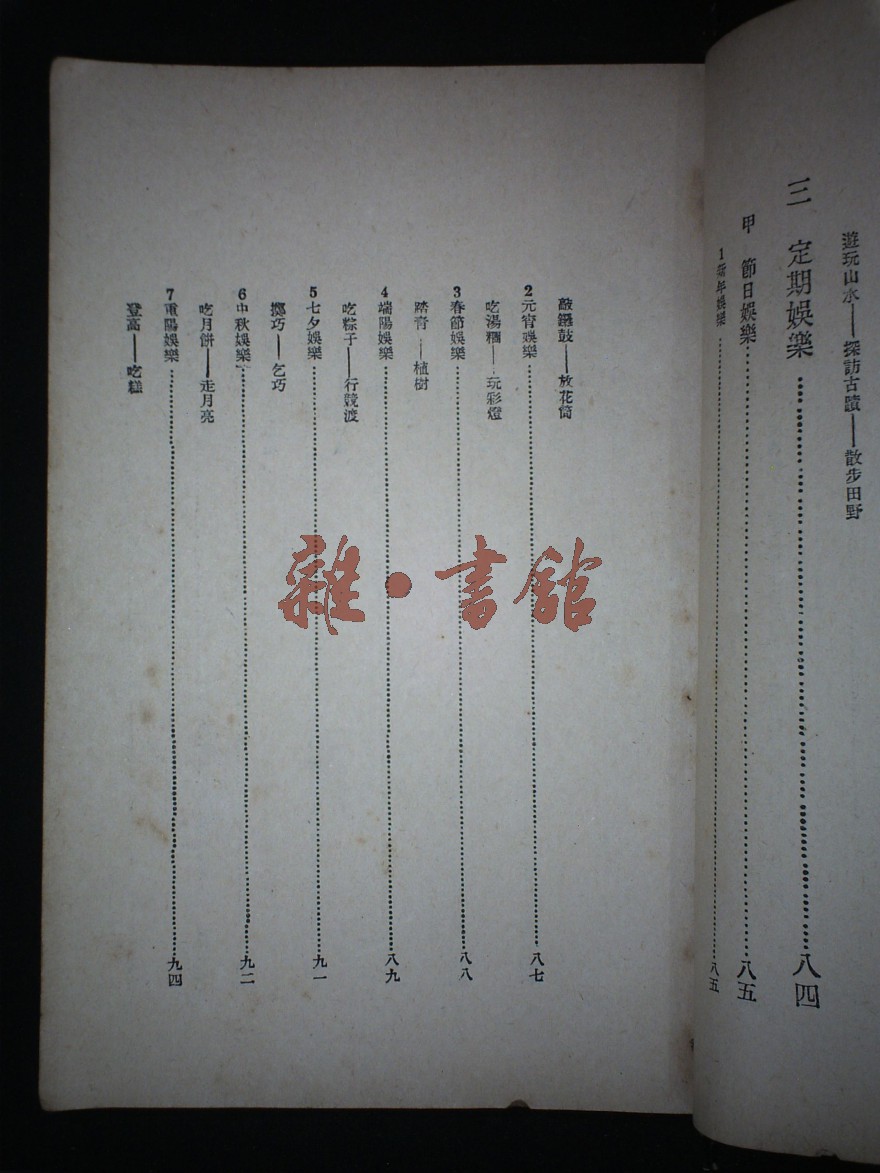 遊玩山水——探訪古蹟——散步田野
三 定期娛樂……八四
甲 節日娛樂……八五
1新年娛樂……八五
敲鑼鼓——放花筒
2元宵娛樂……八七
吃湯糰——玩彩燈
3春節娛樂……八八
踏青——植樹
4端陽娛樂……八九
吃粽子——行競渡
5七夕娛樂……九一
擲巧——乞巧
6中秋娛樂……九二
吃月餅——走月亮
7重陽娛樂……九四
登高——吃糕
雜·書館